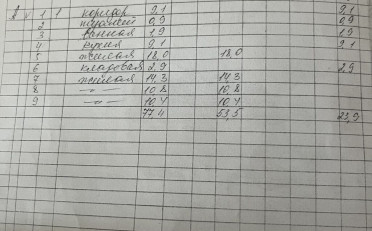 1 1 коридор 9,1 9,1
2 туалет 0,9 0,9
3 ванная 1,9 1,9
4 кухня 9,1 9.1
5 жилая 18,0 18,0
6 кладовая 2,9 2,9
7 жилая 14,3 14,3
8 —"— 10,8 10,8
9 —"— 10,4 10,4
77,4 53,5 23,9